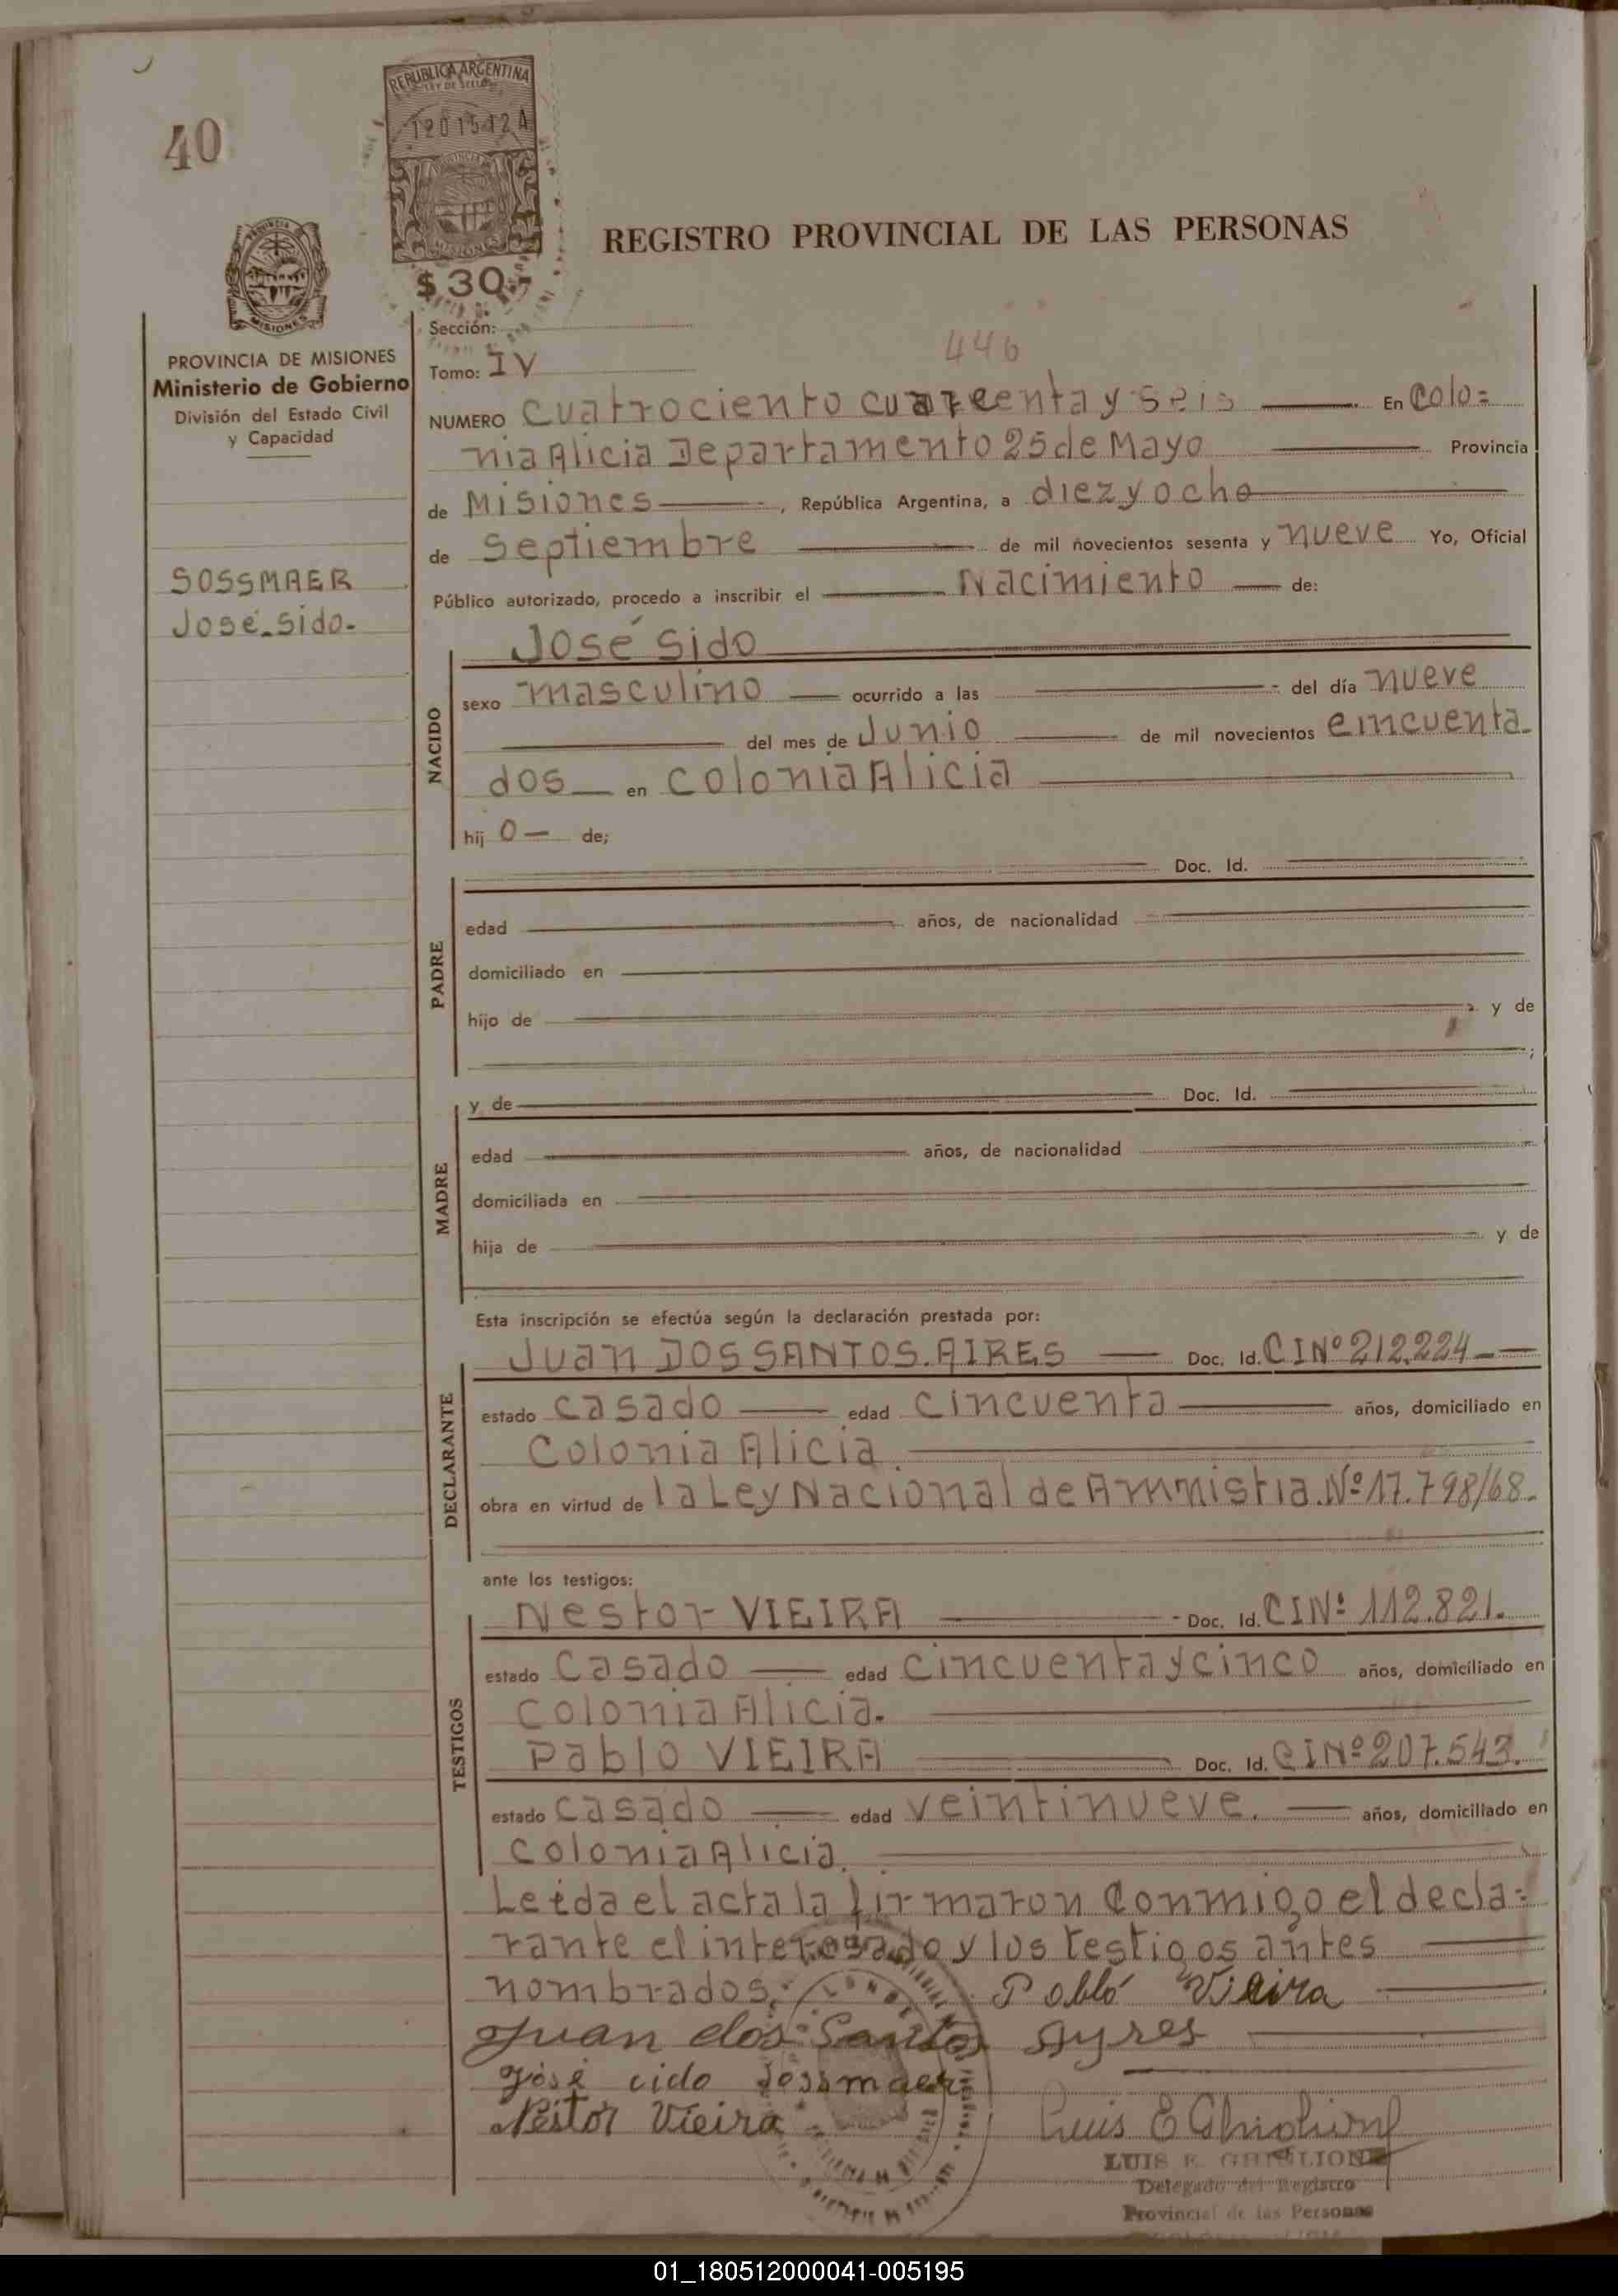 40
REPUBLICA ARGENTINA
LEY DE SELLOS
MISIONES
$30.-
REGISTRO PROVINCIAL DE LAS PERSONAS
MISIONES
PROVINCIA DE MISIONES
Ministerio de Gobierno
División del Estado Civil
y Capacidad
SOSSMAER
José Sido.
Sección:
446
Tomo: IV
NUMERO Cuatrociento cuareenta y seis En Colo=
nia Alicia Departamento 25 de Mayo Provincia
de Misiones, República Argentina, a diez y ocho
de Septiembre de mil novecientos sesenta y nueve Yo, Oficial
Público autorizado, procedo a inscribir el Nacimiento de:
NACIDO
José Sido
sexo masculino ocurrido a las del día nueve
del mes de Junio de mil novecientos cincuenta
dos en Colonia Alicia
hij o de;
PADRE
Doc. Id.
edad años, de nacionalidad
domiciliado en
hijo de y de
;
MADRE
y de Doc. Id.
edad años, de nacionalidad
domiciliada en
hija de y de
Esta inscripción se efectúa según la declaración prestada por:
DECLARANTE
Juan DOS SANTOS. AIRES Doc. Id. CI Nº 212.224
estado casado edad cincuenta años, domiciliado en
Colonia Alicia.
obra en virtud de la Ley Nacional de Ammistia. Nº 17.798/68.
ante los testigos:
TESTIGOS
Nestor VIEIRA Doc. Id. CI Nº 112.821.
estado casado edad cincuenta y cinco años, domiciliado en
Colonia Alicia.
Pablo VIEIRA Doc. Id. CI Nº 207.543.
estado casado edad veintinueve. años, domiciliado en
Colonia Alicia.
Leida el acta la firmaron conmigo el decla=
rante el interesado y los testigos antes
nombrados. Pabló Vieira
Juan dos Santos Ayres
José cido Sossmaer
Nestor Vieira
Luis E Ghiglione
LUIS E. GHIGLIONE
Delegado del Registro
Provincial de las Personas
01_180512000041-005195